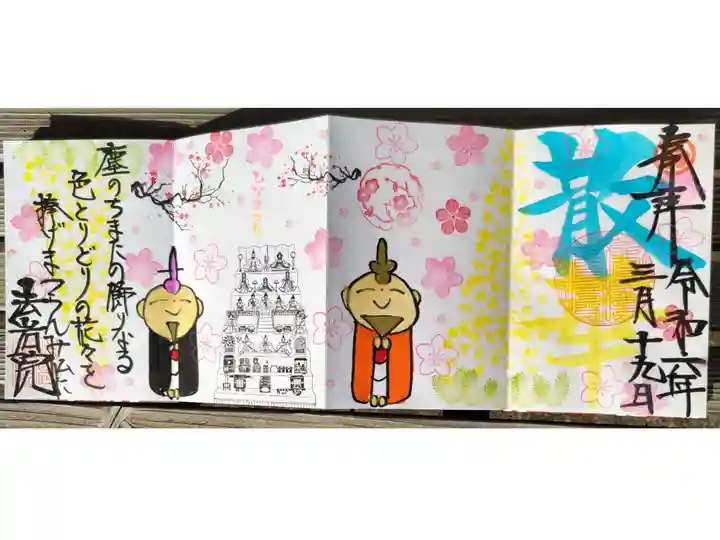 奉拝
令和六年
三月十九日
散
ひなまつり
塵のちまたの飾りなる
色とりどりの花々を
捧げまつらんみ仏に